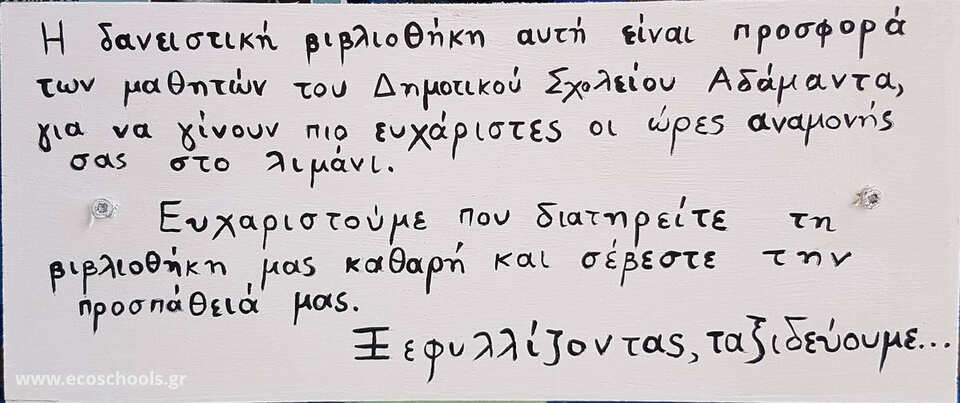 Η δανειστική βιβλιοθήκη αυτή είναι προσφορά
των μαθητών του Δημοτικού Σχολείου Αδάμαντα,
για να γίνουν πιο ευχάριστες οι ώρες αναμονής
σας στο λιμάνι.
Ευχαριστούμε που διατηρείτε τη
βιβλιοθήκη μας καθαρή και σέβεστε την
προσπάθειά μας.
Ξεφυλλίζοντας, ταξιδεύουμε...
www.ecoschools.gr